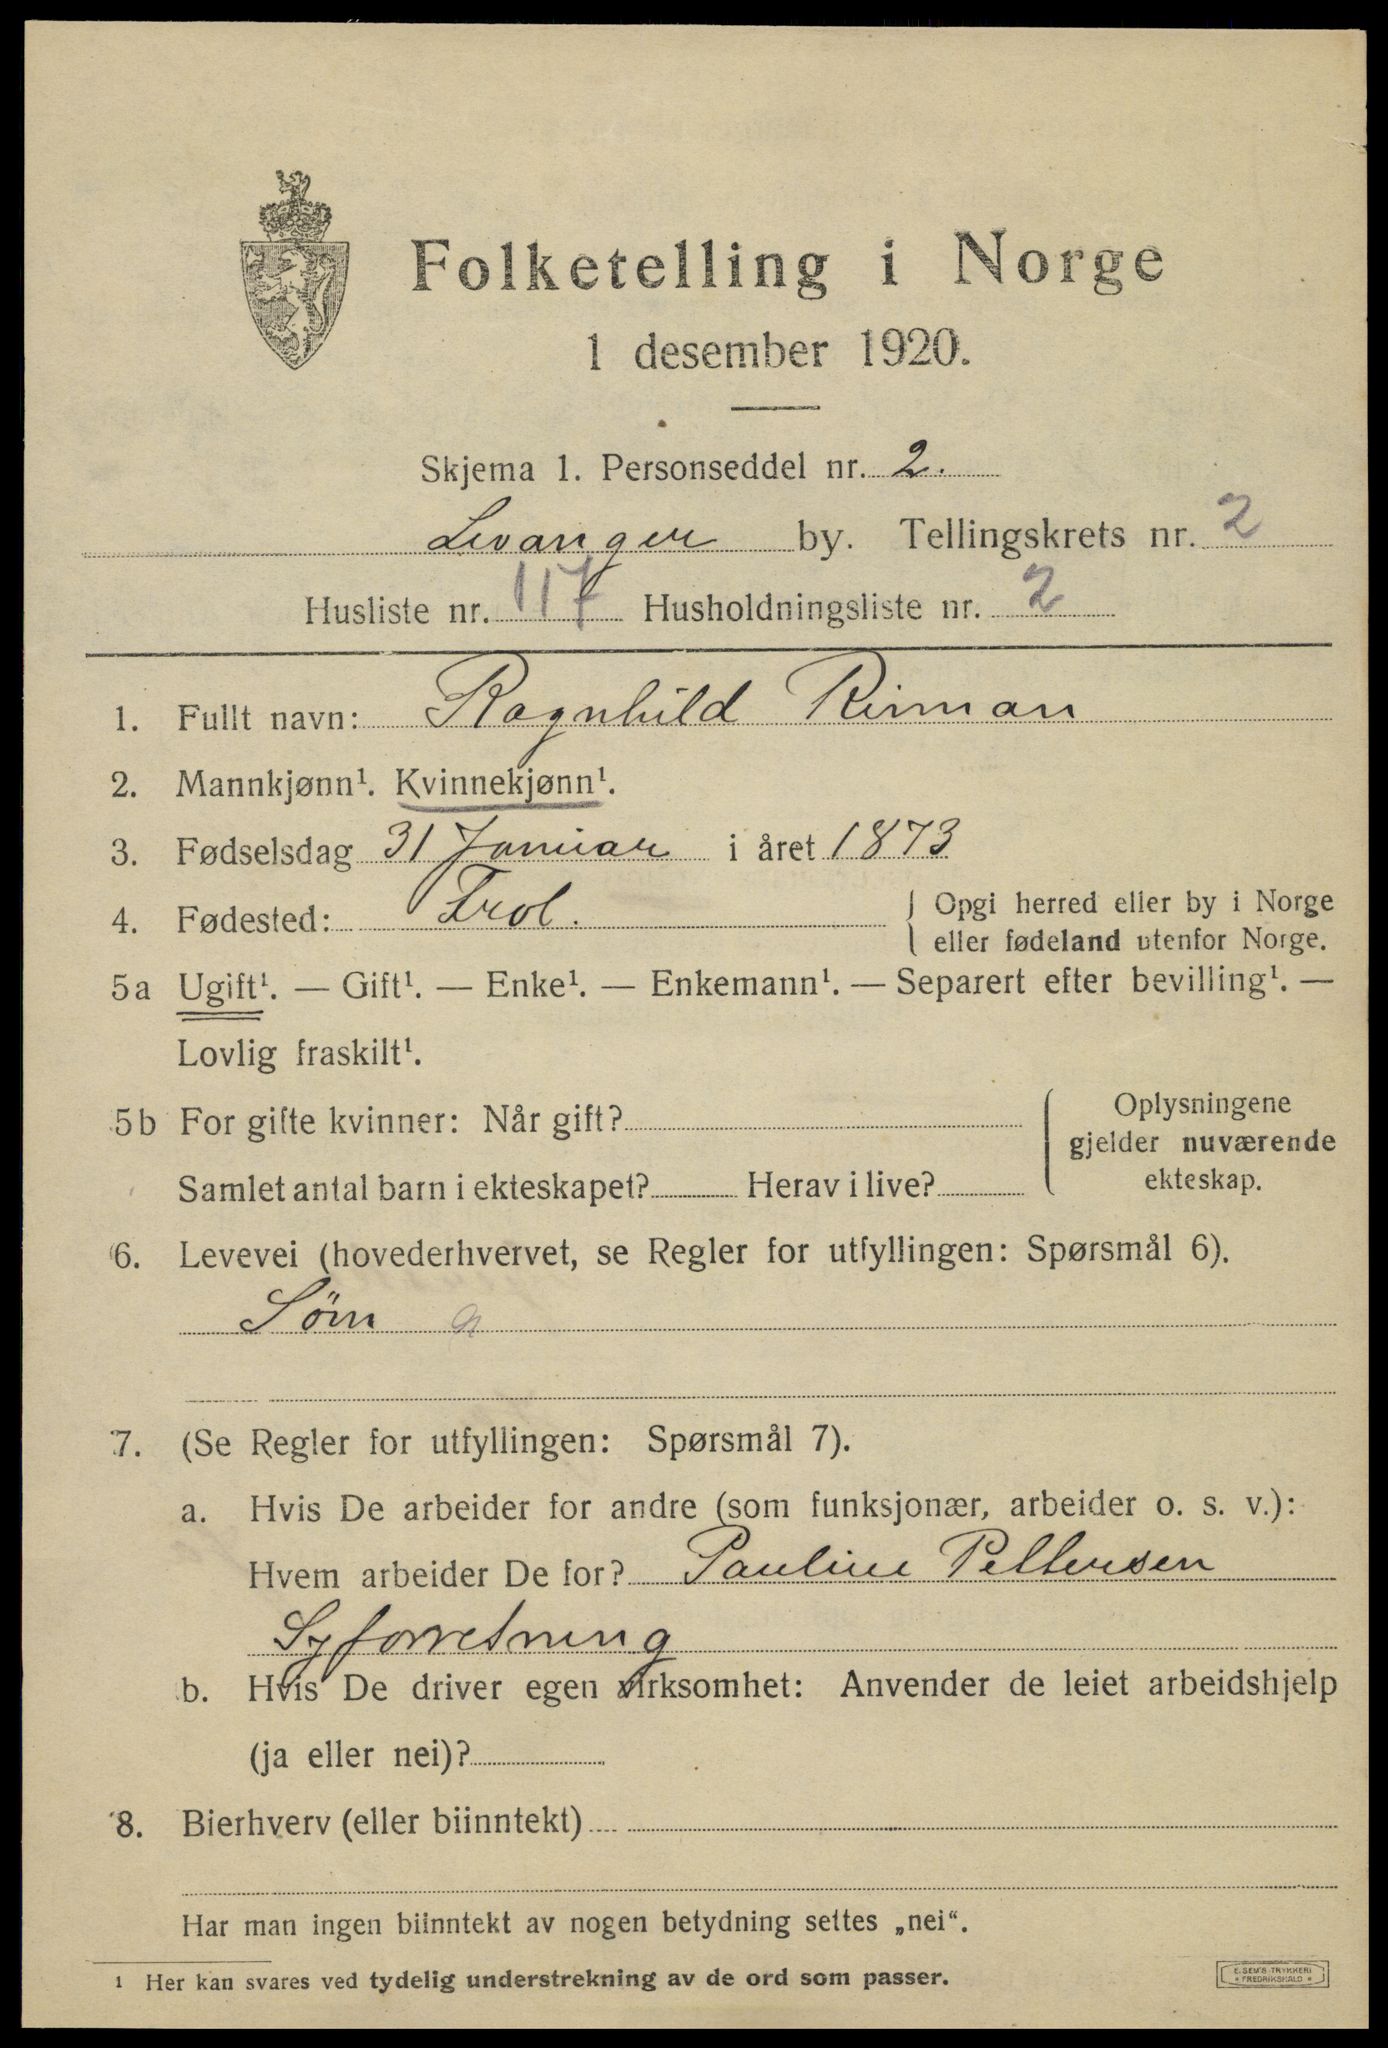 Folketelling i Norge
1 desember 1920.
Skjema 1. Personseddel nr. 2.
Levanger by. Tellingskrets nr. 2
Husliste nr. 117 Husholdningsliste nr. 2
1. Fullt navn: Ragnhild Rinnan
2. Mannkjønn¹. Kvinnekjønn¹.
3. Fødselsdag 31 Januar i året 1873
4. Fødested: Frol. { Opgi herred eller by i Norge
eller fødeland utenfor Norge.
5a Ugift¹. — Gift¹. — Enke¹. — Enkemann¹. — Separert efter bevilling¹. —
Lovlig fraskilt¹.
5b For gifte kvinner: Når gift?
Samlet antal barn i ekteskapet? Herav i live?
Oplysningene
gjelder nuværende
ekteskap.
6. Levevei (hovederhvervet, se Regler for utfyllingen: Spørsmål 6).
Søm a
7. (Se Regler for utfyllingen: Spørsmål 7).
a. Hvis De arbeider for andre (som funksjonær, arbeider o. s. v.):
Hvem arbeider De for? Pauline Pettersen
Syforretning
b. Hvis De driver egen virksomhet: Anvender de leiet arbeidshjelp
(ja eller nei)?
8. Bierhverv (eller biinntekt)
Har man ingen biinntekt av nogen betydning settes „nei“.
¹ Her kan svares ved tydelig understrekning av de ord som passer.
E. SEM'S TRYKKERI
* FREDRIKSHALD *